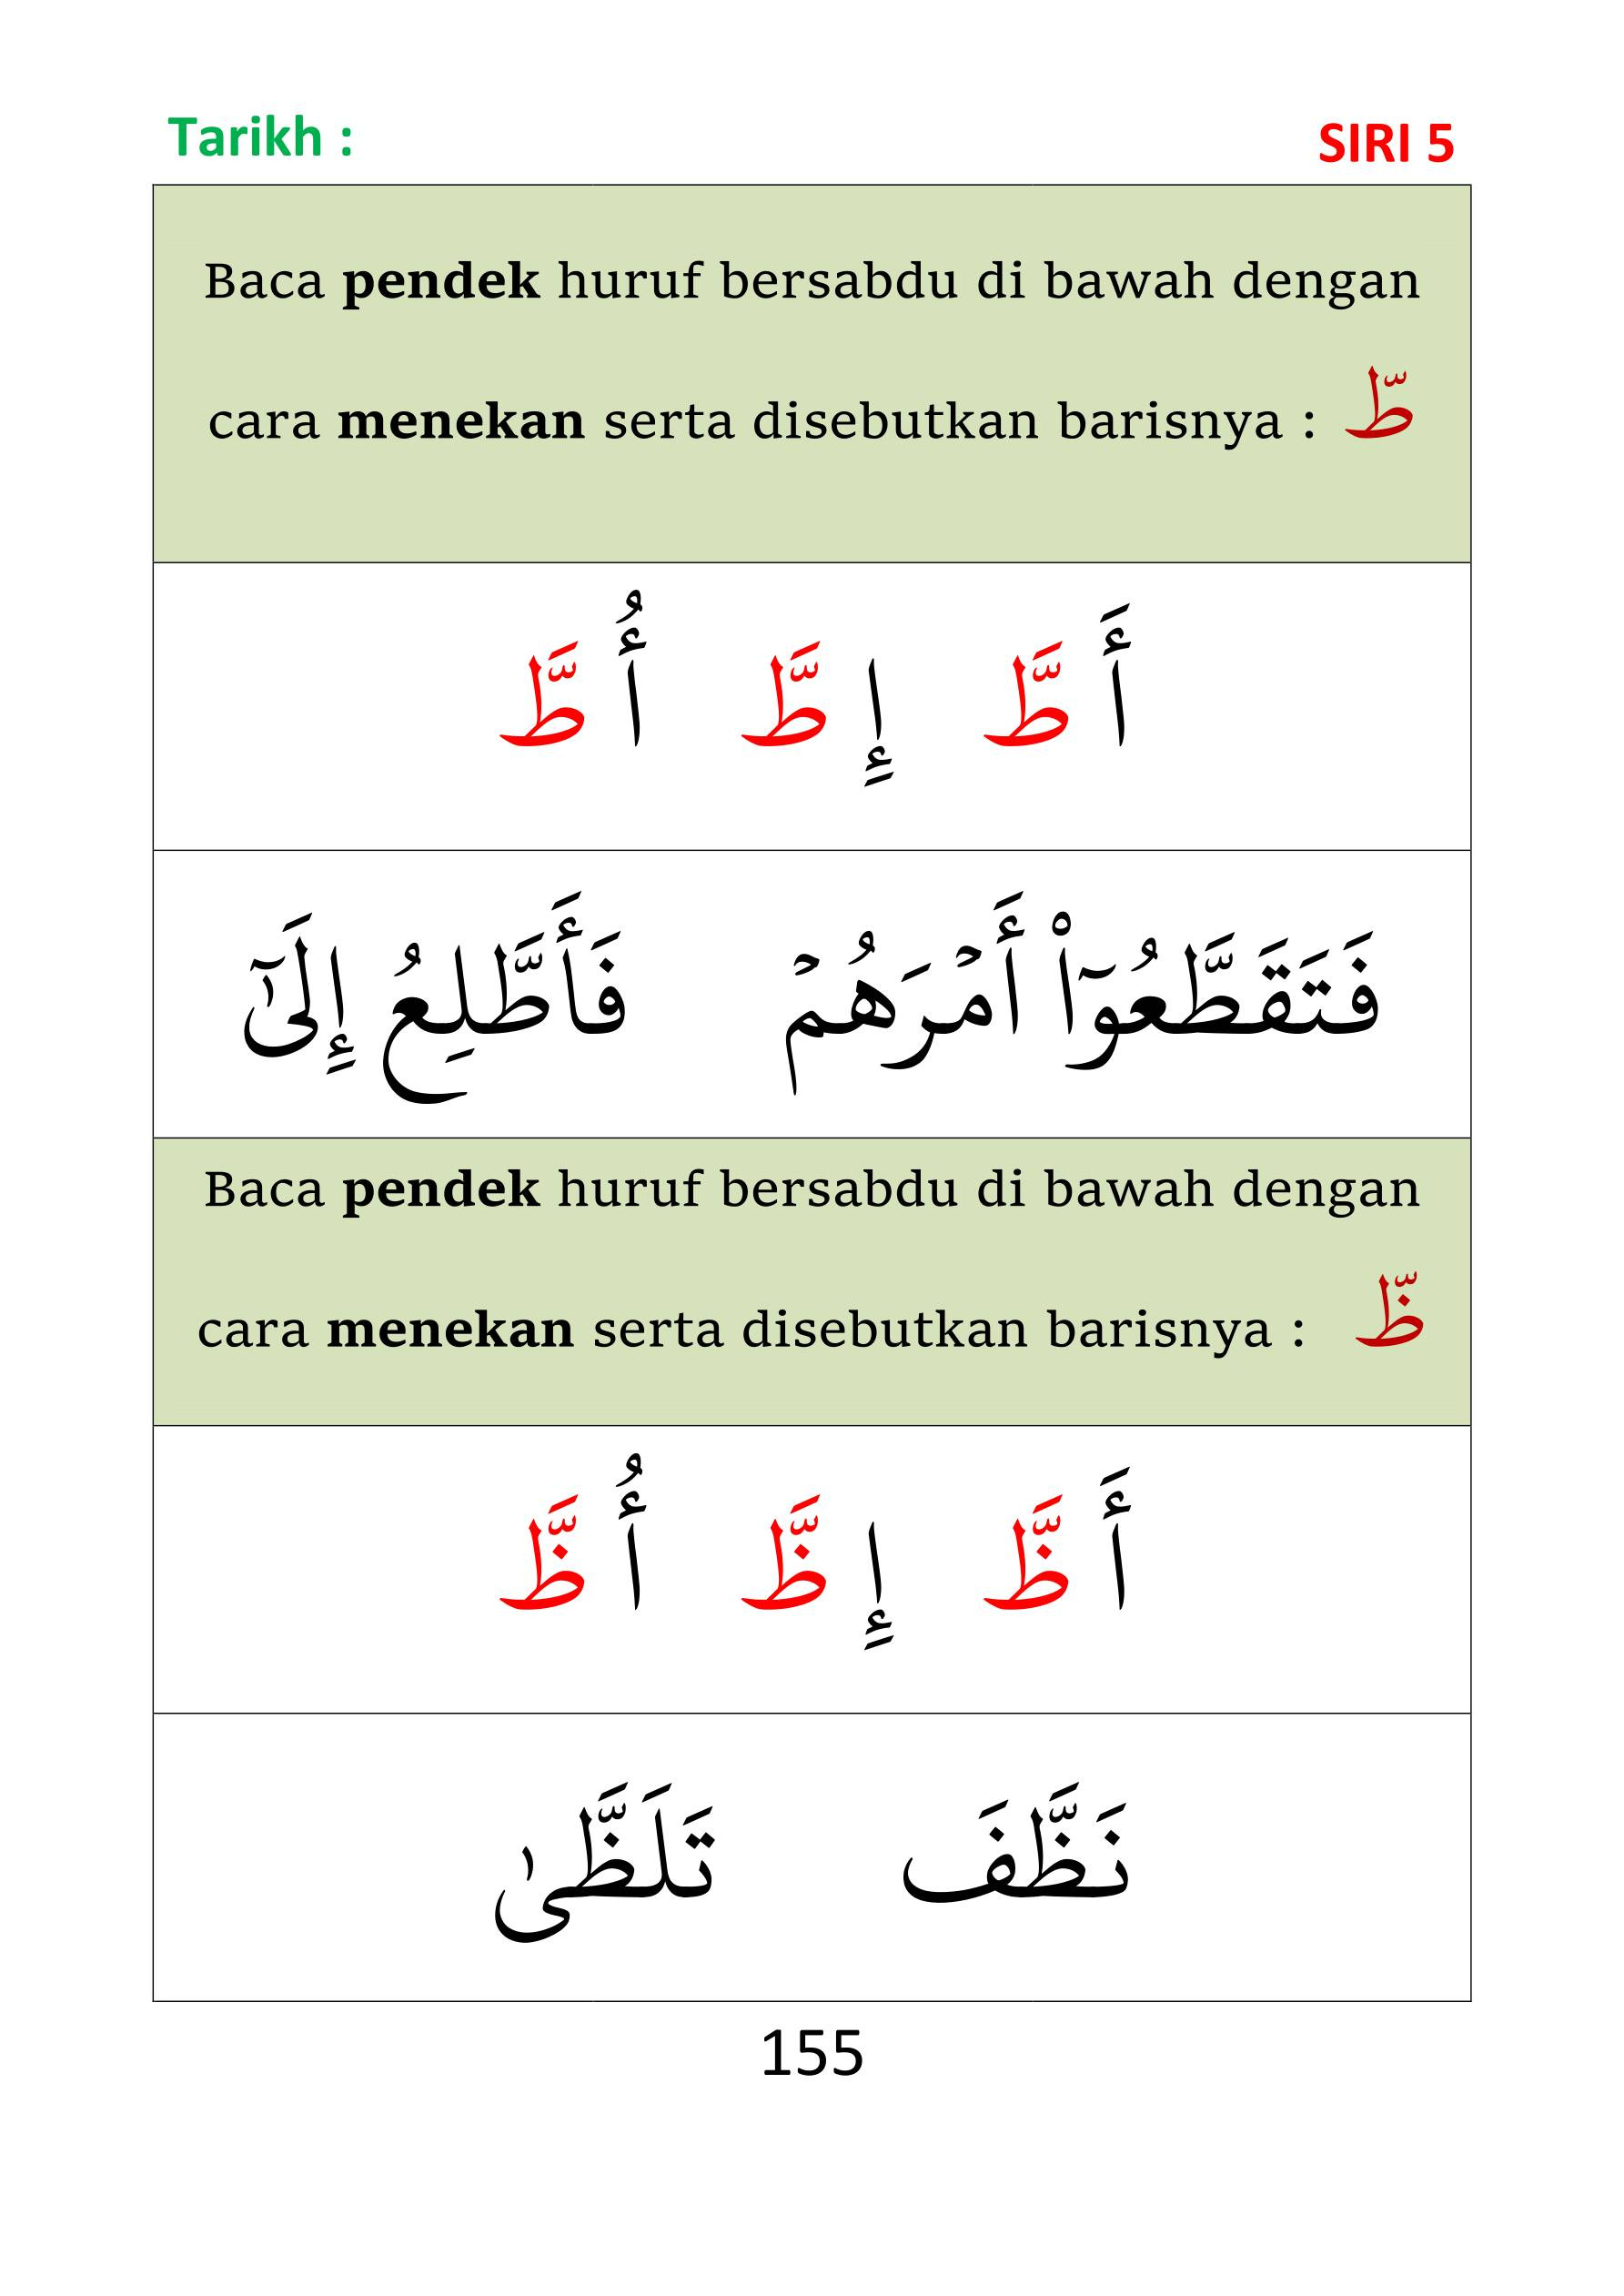 Tarikh :
SIRI 5
Baca pendek huruf bersabdu di bawah dengan
cara menekan serta disebutkan barisnya : طّ
أَطَّ إِطَّ أُطَّ
فَتَقَطَّعُوٓا۟ أَمۡرَهُمۡ فَأَطَّلِعُ إِلَىٰٓ
Baca pendek huruf bersabdu di bawah dengan
cara menekan serta disebutkan barisnya : ظّ
أَظَّ إِظَّ أُظَّ
نَظَّفَ تَلَظَّىٰ
155